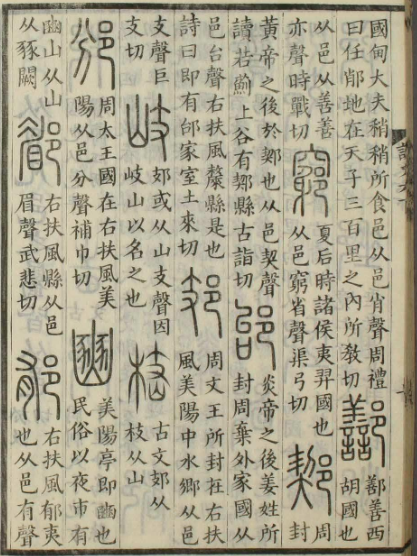 國甸大夫稍稍所食邑从邑肖聲周禮
曰任䣚地在天子三百里之內所教切
鄯 鄯善西
胡國也
从邑从善善
亦聲時戰切
竆 夏后時諸侯夷羿國也
从邑窮省聲渠弓切
䣯 周
封
黃帝之後於䣯也从邑契聲
讀若薊上谷有䣯縣古詣切
邰 炎帝之後姜姓所
封周棄外家國从
邑台聲右扶風斄縣是也
詩曰即有邰家室土來切
𨙸 周文王所封在右扶
風美陽中水鄉从邑
支聲巨
支切
岐 𨙸或从山支聲因
岐山以名之也
𣖌 古文𨙸从
枝从山
邠 周太王國在右扶風美
陽从邑分聲補巾切
豳 美陽亭即豳也
民俗以夜市有
豳山从山
从豩闕
郿 右扶風縣从邑
眉聲武悲切
郁 右扶風郁夷
也从邑有聲